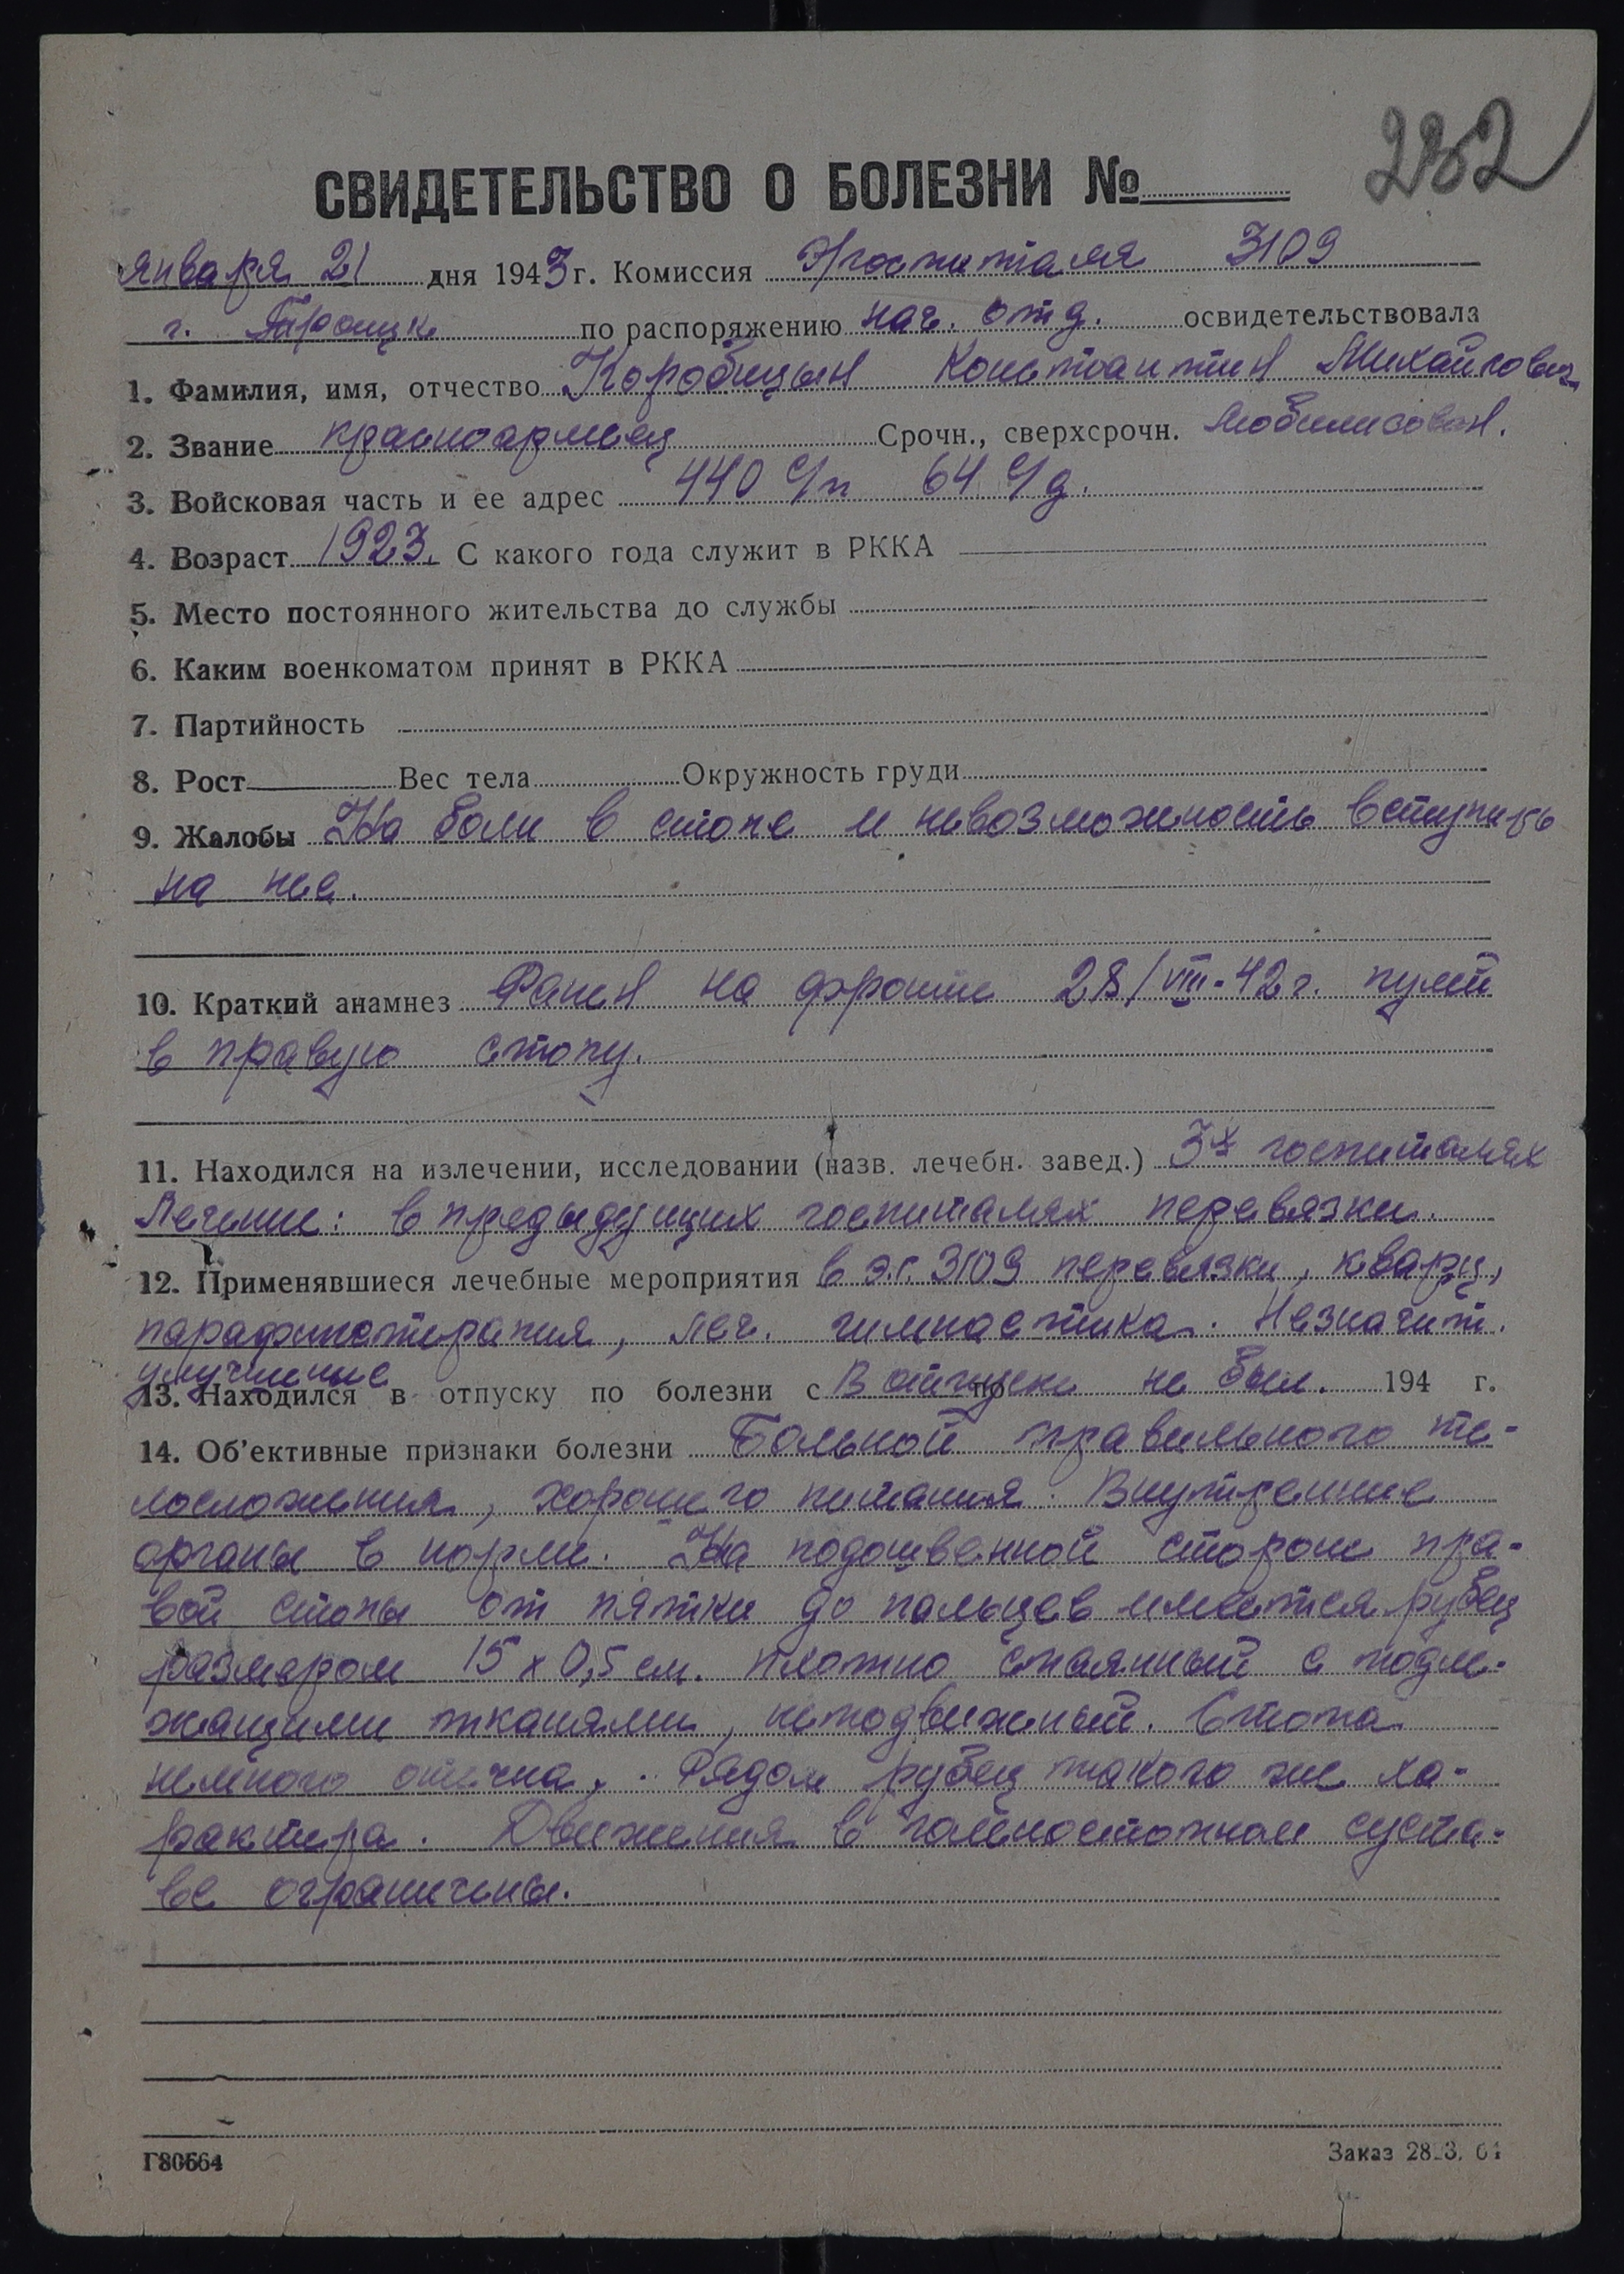 252
СВИДЕТЕЛЬСТВО О БОЛЕЗНИ №
января 21 дня 1943 г. Комиссия Э/госпиталя 3109
г. Троицк по распоряжению нач. отд. освидетельствовала
1. Фамилия, имя, отчество Коробицын Константин Михайлович
2. Звание красноармеец Срочн., сверхсрочн. мобилизован.
3. Войсковая часть и ее адрес 440 с/п 64 с/д.
4. Возраст 1923. С какого года служит в РККА
5. Место постоянного жительства до службы
6. Каким военкоматом принят в РККА
7. Партийность
8. Рост Вес тела Окружность груди
9. Жалобы На боли в стопе и невозможность вступить
на нее.
10. Краткий анамнез Ранен на фронте 28/VIII-42 г. пулей
в правую стопу.
11. Находился на излечении, исследовании (назв. лечебн. завед.) 3х госпиталях
Лечение: в предыдущих госпиталях перевязки.
12. Применявшиеся лечебные мероприятия в э.г. 3109 перевязки, кварц,
парафинотерапия, леч. гимнастика. Незначит.
улучшение
13. Находился в отпуску по болезни с В отпуске по не был. 194 г.
14. Об'ективные признаки болезни Больной правильного те-
лосложения, хорошего питания. Внутренние
органы в норме. На подошвенной стороне пра-
вой стопы от пятки до пальцев имеется рубец
размером 15 х 0,5 см. плотно спаянный с подле-
жащими тканями, неподвижный. Стопа
немного отечна. Рядом рубец такого же ха-
рактера. Движения в голеностопном суста-
ве ограничены.
Г80564
Заказ